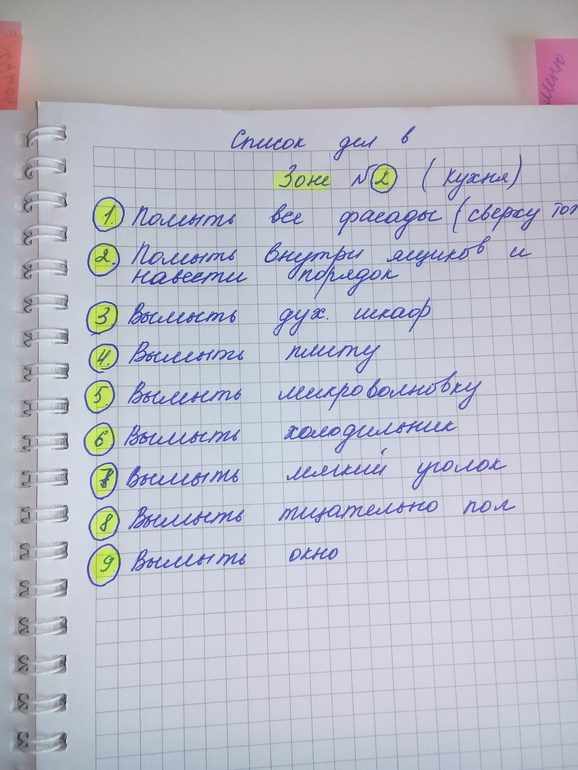 Список дел в
Зоне №2 (кухня)
1. Помыть все фасады (сверху тож
2. Помыть внутри ящиков и
навести порядок
3 Вымыть дух. шкаф
4. Вымыть плиту
5. Вымыть микроволновку
6 Вымыть холодильник
7 Вымыть мягкий уголок
8 Вымыть тщательно пол
9. Вымыть окно
меню